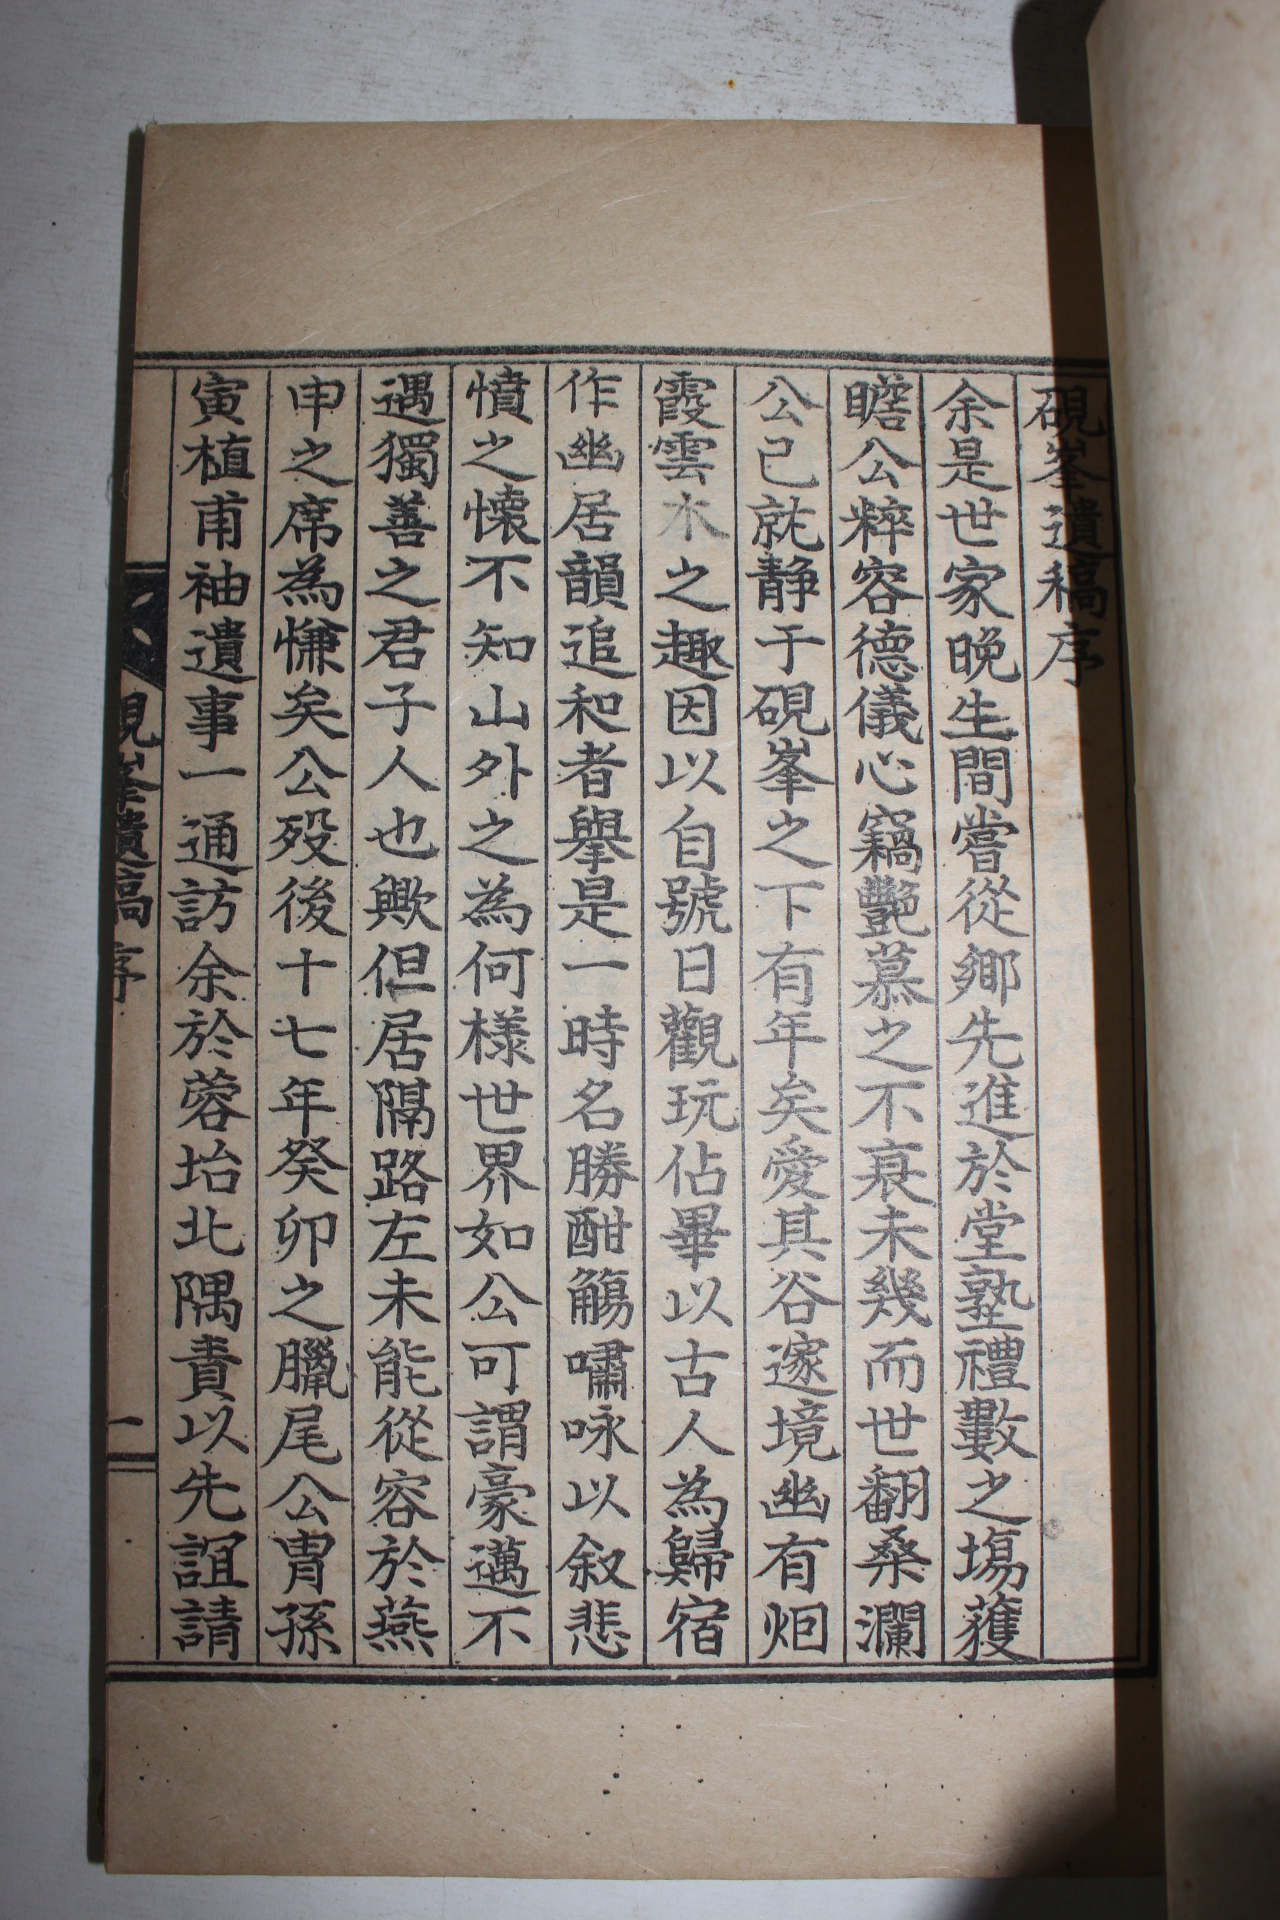 硯峯遺稿序
余是世家晚生間嘗從鄉先進於堂塾禮數之場獲
瞻公粹容德儀心竊艷慕之不衰未幾而世翻桑瀾
公已就静于硯峯之下有年矣愛其谷邃境幽有烟
霞雲水之趣因以自號日觀玩佔畢以古人為歸宿
作幽居韻追和者舉是一時名勝酣觴嘯咏以叙悲
憤之懷不知山外之為何樣世界如公可謂豪邁不
遇獨善之君子人也歟但居隔路左未能從容於燕
申之席為慊矣公殁後十七年癸卯之臘尾公胄孫
寅植甫袖遺事一通訪余於蓉坮北隅責以先誼請
硯峯遺稿 序
一